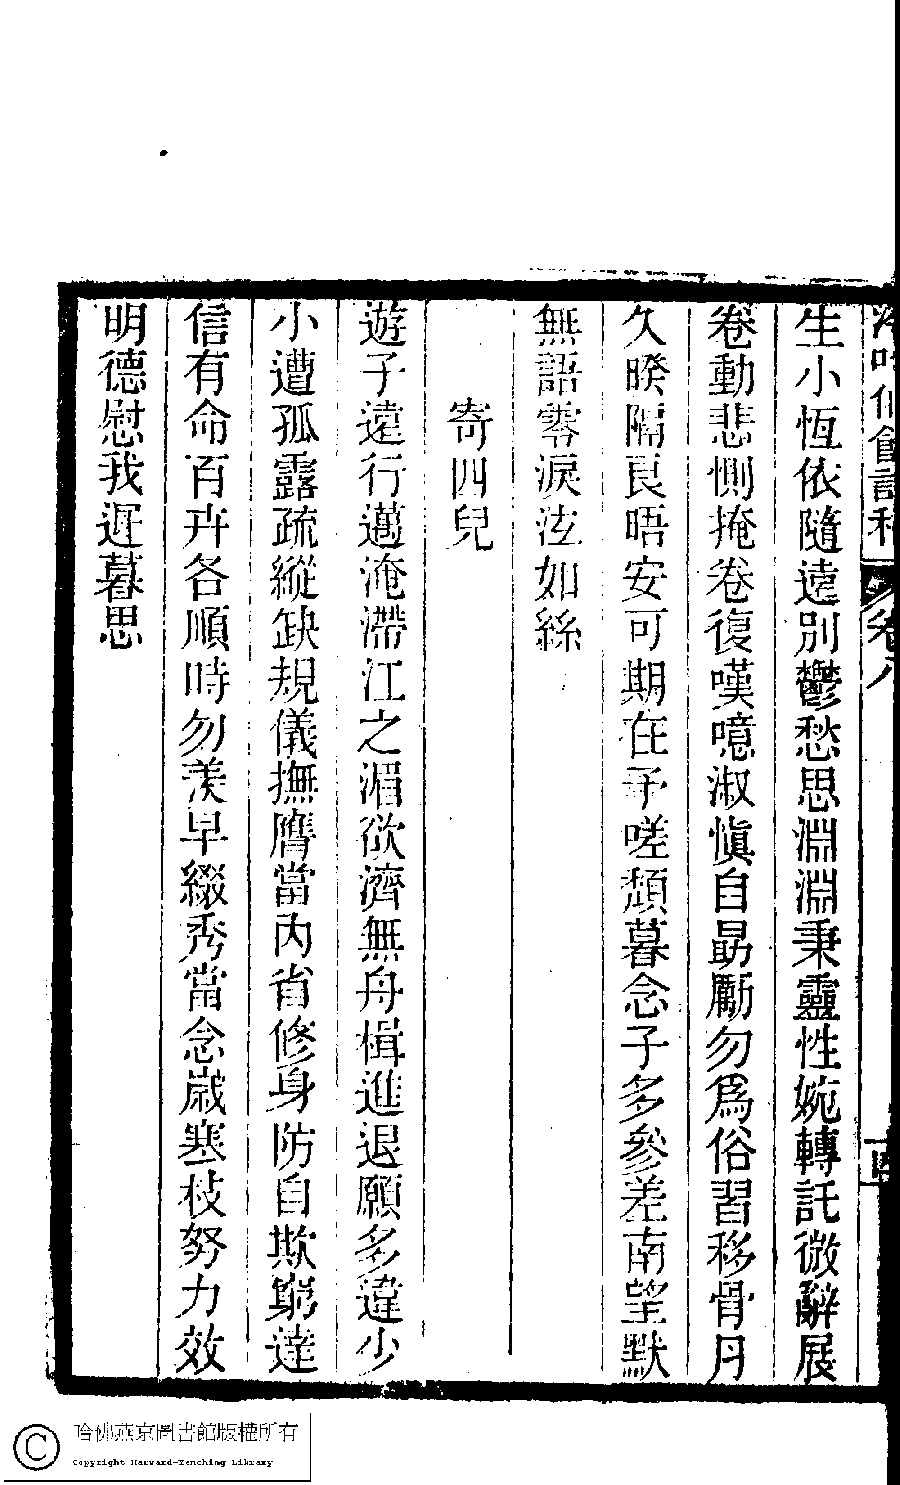 生小恆依隨遠別鬱愁思淵淵秉靈性婉轉託微辭展
卷動悲惻掩卷復嘆噫淑愼自勗勵勿爲俗習移骨月
久暌隔良晤安可期在予嗟頽暮念子多參差南望默
無語零淚泫如絲
寄四兒
遊子遠行邁淹滯江之湄欲濟無舟楫進退願多違少
小遭孤露疏縱缺規儀撫膺當內省修身防自欺窮達
信有命百卉各順時勿羨早綴秀當念歲寒枝努力效
明德慰我遲暮思
卷八
哈佛燕京圖書館版權所有
Copyright Harvard-Yenching Library